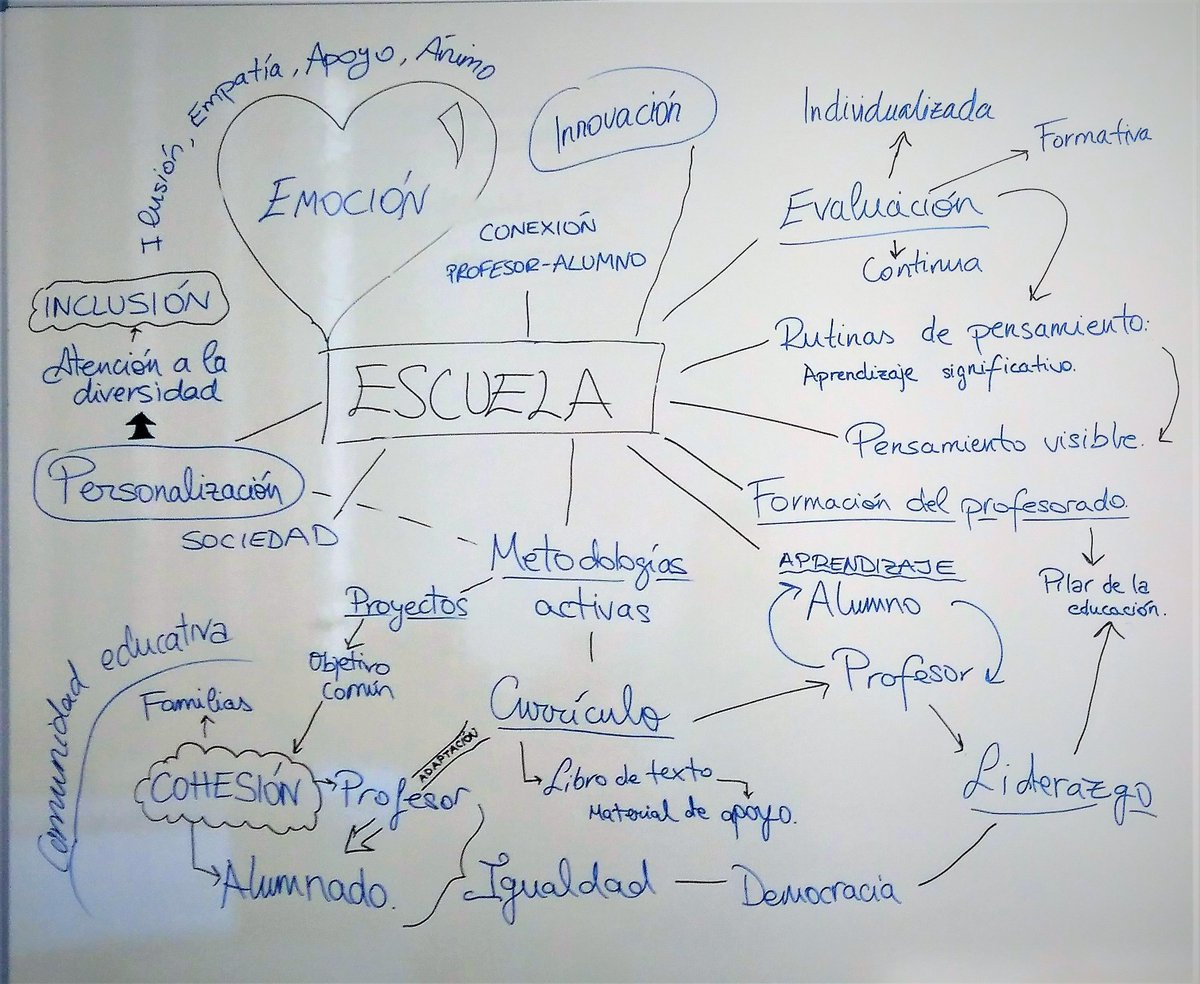 Ilusión, Empatía, Apoyo, Áñimo
EMOCIÓN
Innovación
CONEXIÓN
PROFESOR-ALUMNO
Individualizada
Formativa
Evaluación
Continua
INCLUSIÓN
Atención a la
diversidad
Personalización
SOCIEDAD
ESCUELA
Rutinas de pensamiento:
Aprendizaje significativo.
Pensamiento visible.
Formación del profesorado.
Pilar de la
educación.
APRENDIZAJE
Alumno
Profesor
Metodologías
activas
Proyectos
Objetivo
común
Comunidad educativa
Familias
COHESIÓN
Profesor
ADAPTACIÓN
Alumnado.
Currículo
Libro de texto
Material de apoyo.
Liderazgo
Igualdad
Democracia